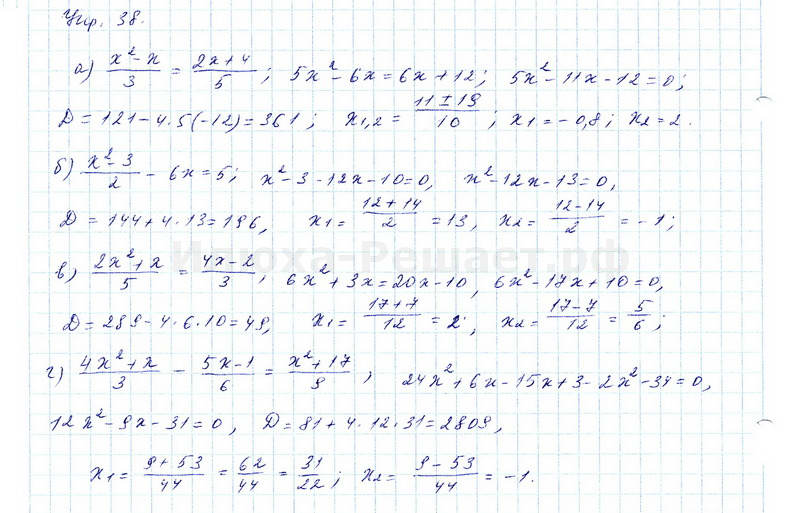 Упр. 38.
а) (x² - x)/3 = (2x + 4)/5 ; 5x² - 6x = 6x + 12 ; 5x² - 11x - 12 = 0 ;
D = 121 - 4·5(-12) = 361 ; x1,2 = (11 ± 19)/10 ; x1 = -0,8 ; x2 = 2 .
б) (x² - 3)/2 - 6x = 5 ; x² - 3 - 12x - 10 = 0, x² - 12x - 13 = 0,
D = 144 + 4·13 = 196, x1 = (12 + 14)/2 = 13, x2 = (12 - 14)/2 = -1 ;
Илюха-Решает.рф
в) (2x² + x)/5 = (4x - 2)/3 ; 6x² + 3x = 20x - 10, 6x² - 17x + 10 = 0,
D = 289 - 4·6·10 = 49, x1 = (17 + 7)/12 = 2, x2 = (17 - 7)/12 = 5/6 ;
г) (4x² + x)/3 - (5x - 1)/6 = (x² + 17)/9 , 24x² + 6x - 15x + 3 - 2x² - 34 = 0,
12x² - 9x - 31 = 0, D = 81 + 4·12·31 = 2809,
x1 = (9 + 53)/44 = 62/44 = 31/22 ; x2 = (9 - 53)/44 = -1.